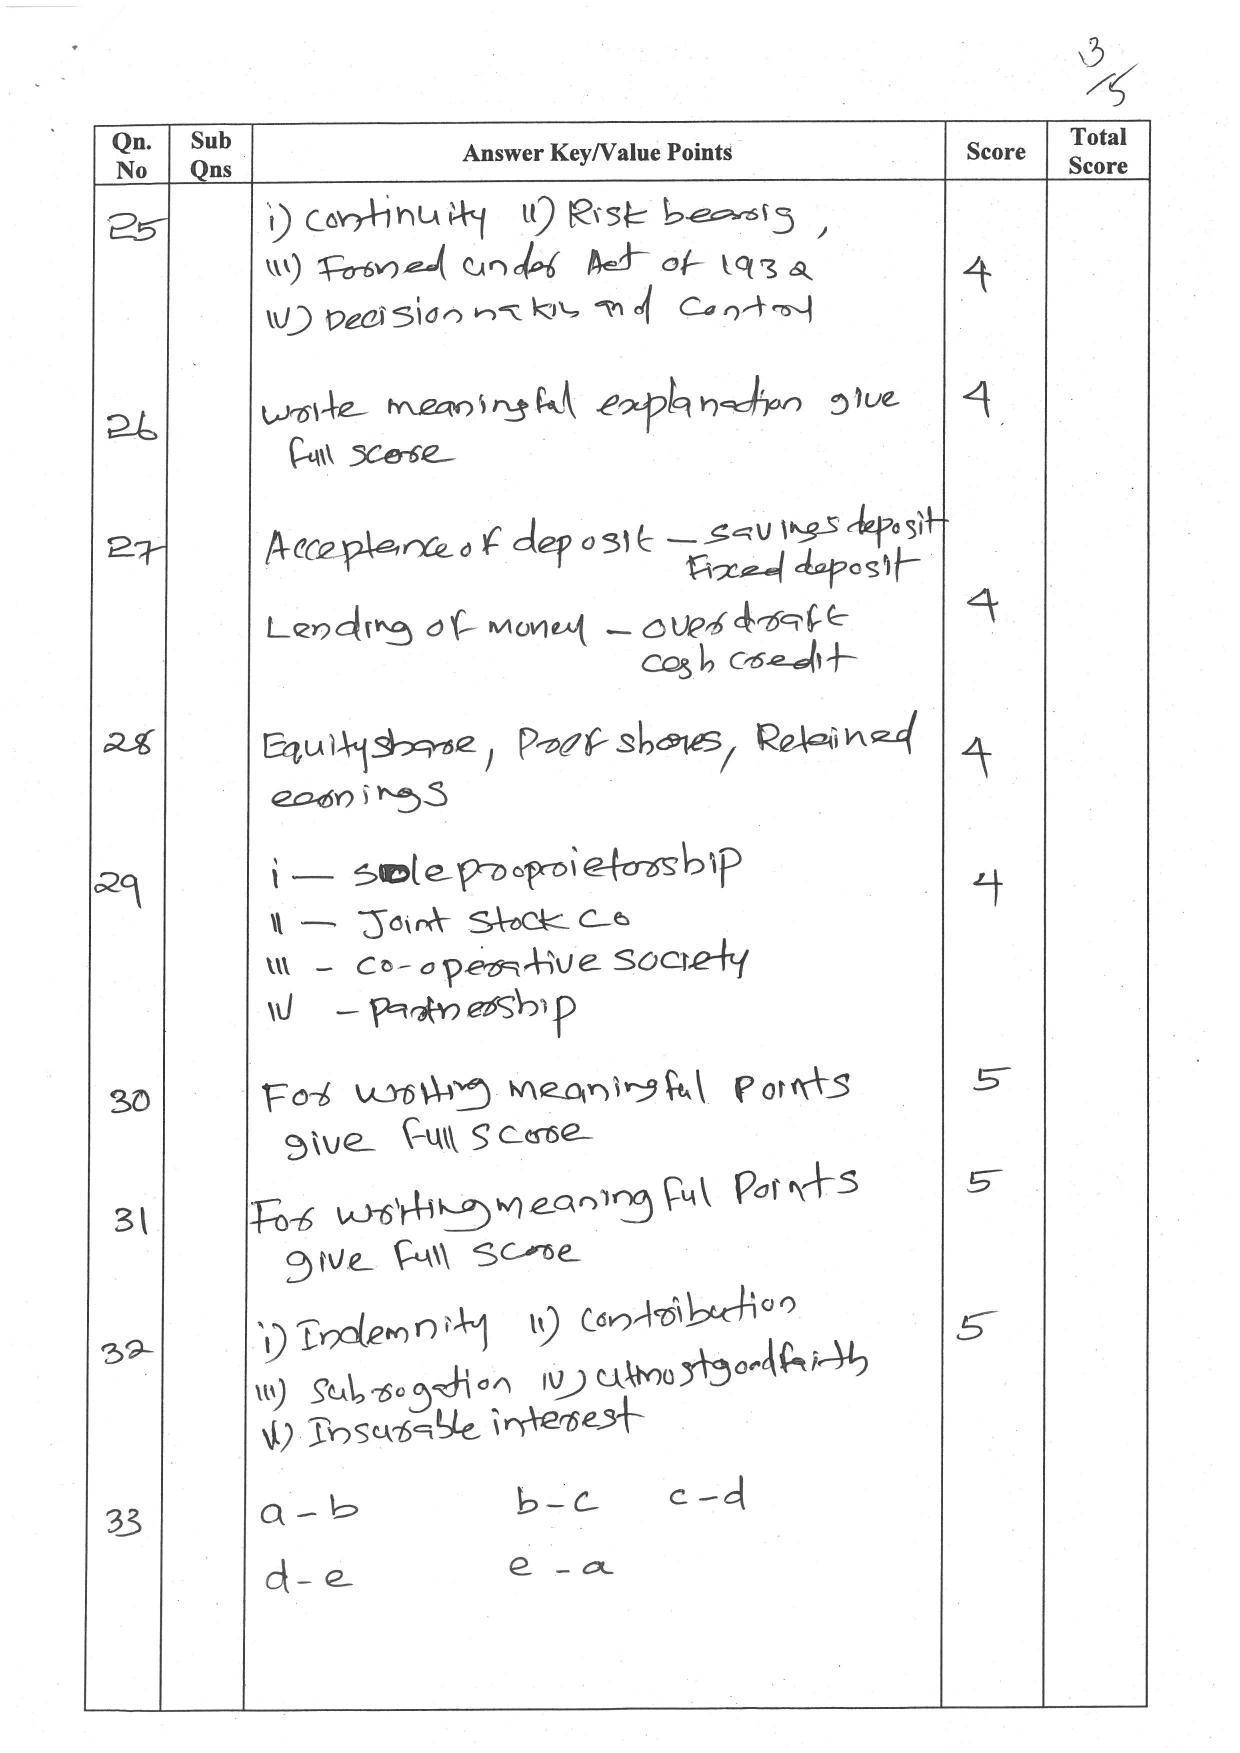 3/5
Qn. No
Sub Qns
Answer Key/Value Points
Score
Total Score
25 i) Continuity ii) Risk bearing,
iii) Formed under Act of 1932 4
iv) Decision making and Control
26 Write meaningful explanation give 4
full score
27 Acceptance of deposit – savings deposit
Fixed deposit
4
Lending of money – overdraft
cash credit
28 Equity share, Pref shares, Retained 4
earnings
29 i – sole proprietorship 4
ii – Joint Stock Co
iii – Co-operative society
iv – Partnership
30 For writing meaningful Points 5
give full score
31 For writing meaningful Points 5
give full score
32 i) Indemnity ii) contribution 5
iii) Subrogation iv) utmost good faith
v) Insurable interest
33 a – b b – c c – d
d – e e – a